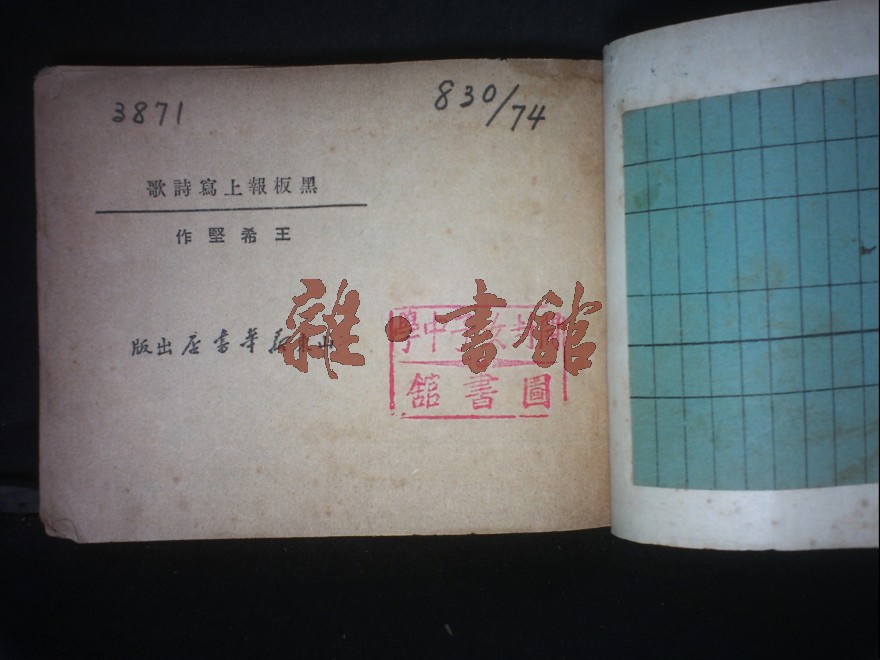 3871
830/74
黑板報上寫詩歌
王希堅作
山東新華書店出版
雜·書館
中學
圖書舘